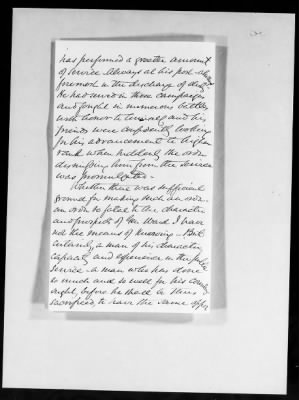 has performed a greater amount
of service always at his post always
foremost in the discharge of duty
he had served in three campaigns
and fought in numerous battles
with honor to himself and his
friends were confidently looking
for his advancement to higher
rank when suddenly the order
dismissing him from the service
was promulgated -
Whether there was sufficient
ground for making such an order -
an order so fatal to the character
and prospects of Van Arnd I have
not the means of knowing - But
certainly a man of his character
capacity and experience in the public
service - a man who has done
so much and so well for his country
ought, before he shall be thus
sacrificed, to have the same oppor